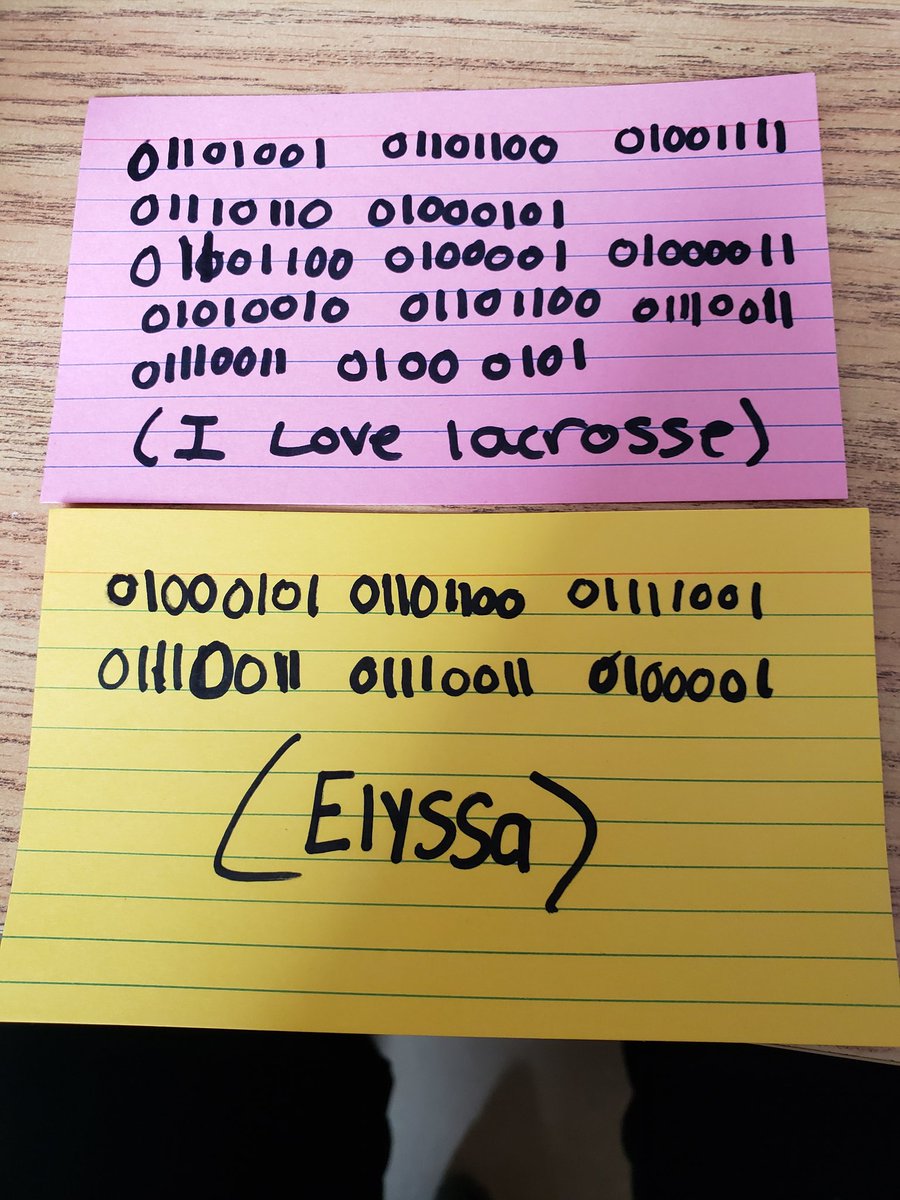 01101001 01101100 01001111
01110110 01000101
0100001 01000011
01010010 01101100 01110011
01110011 0100 0101
(I Love lacrosse)
01000101 01101100 01111001
01110011 01110011 0100001
(Elyssa)